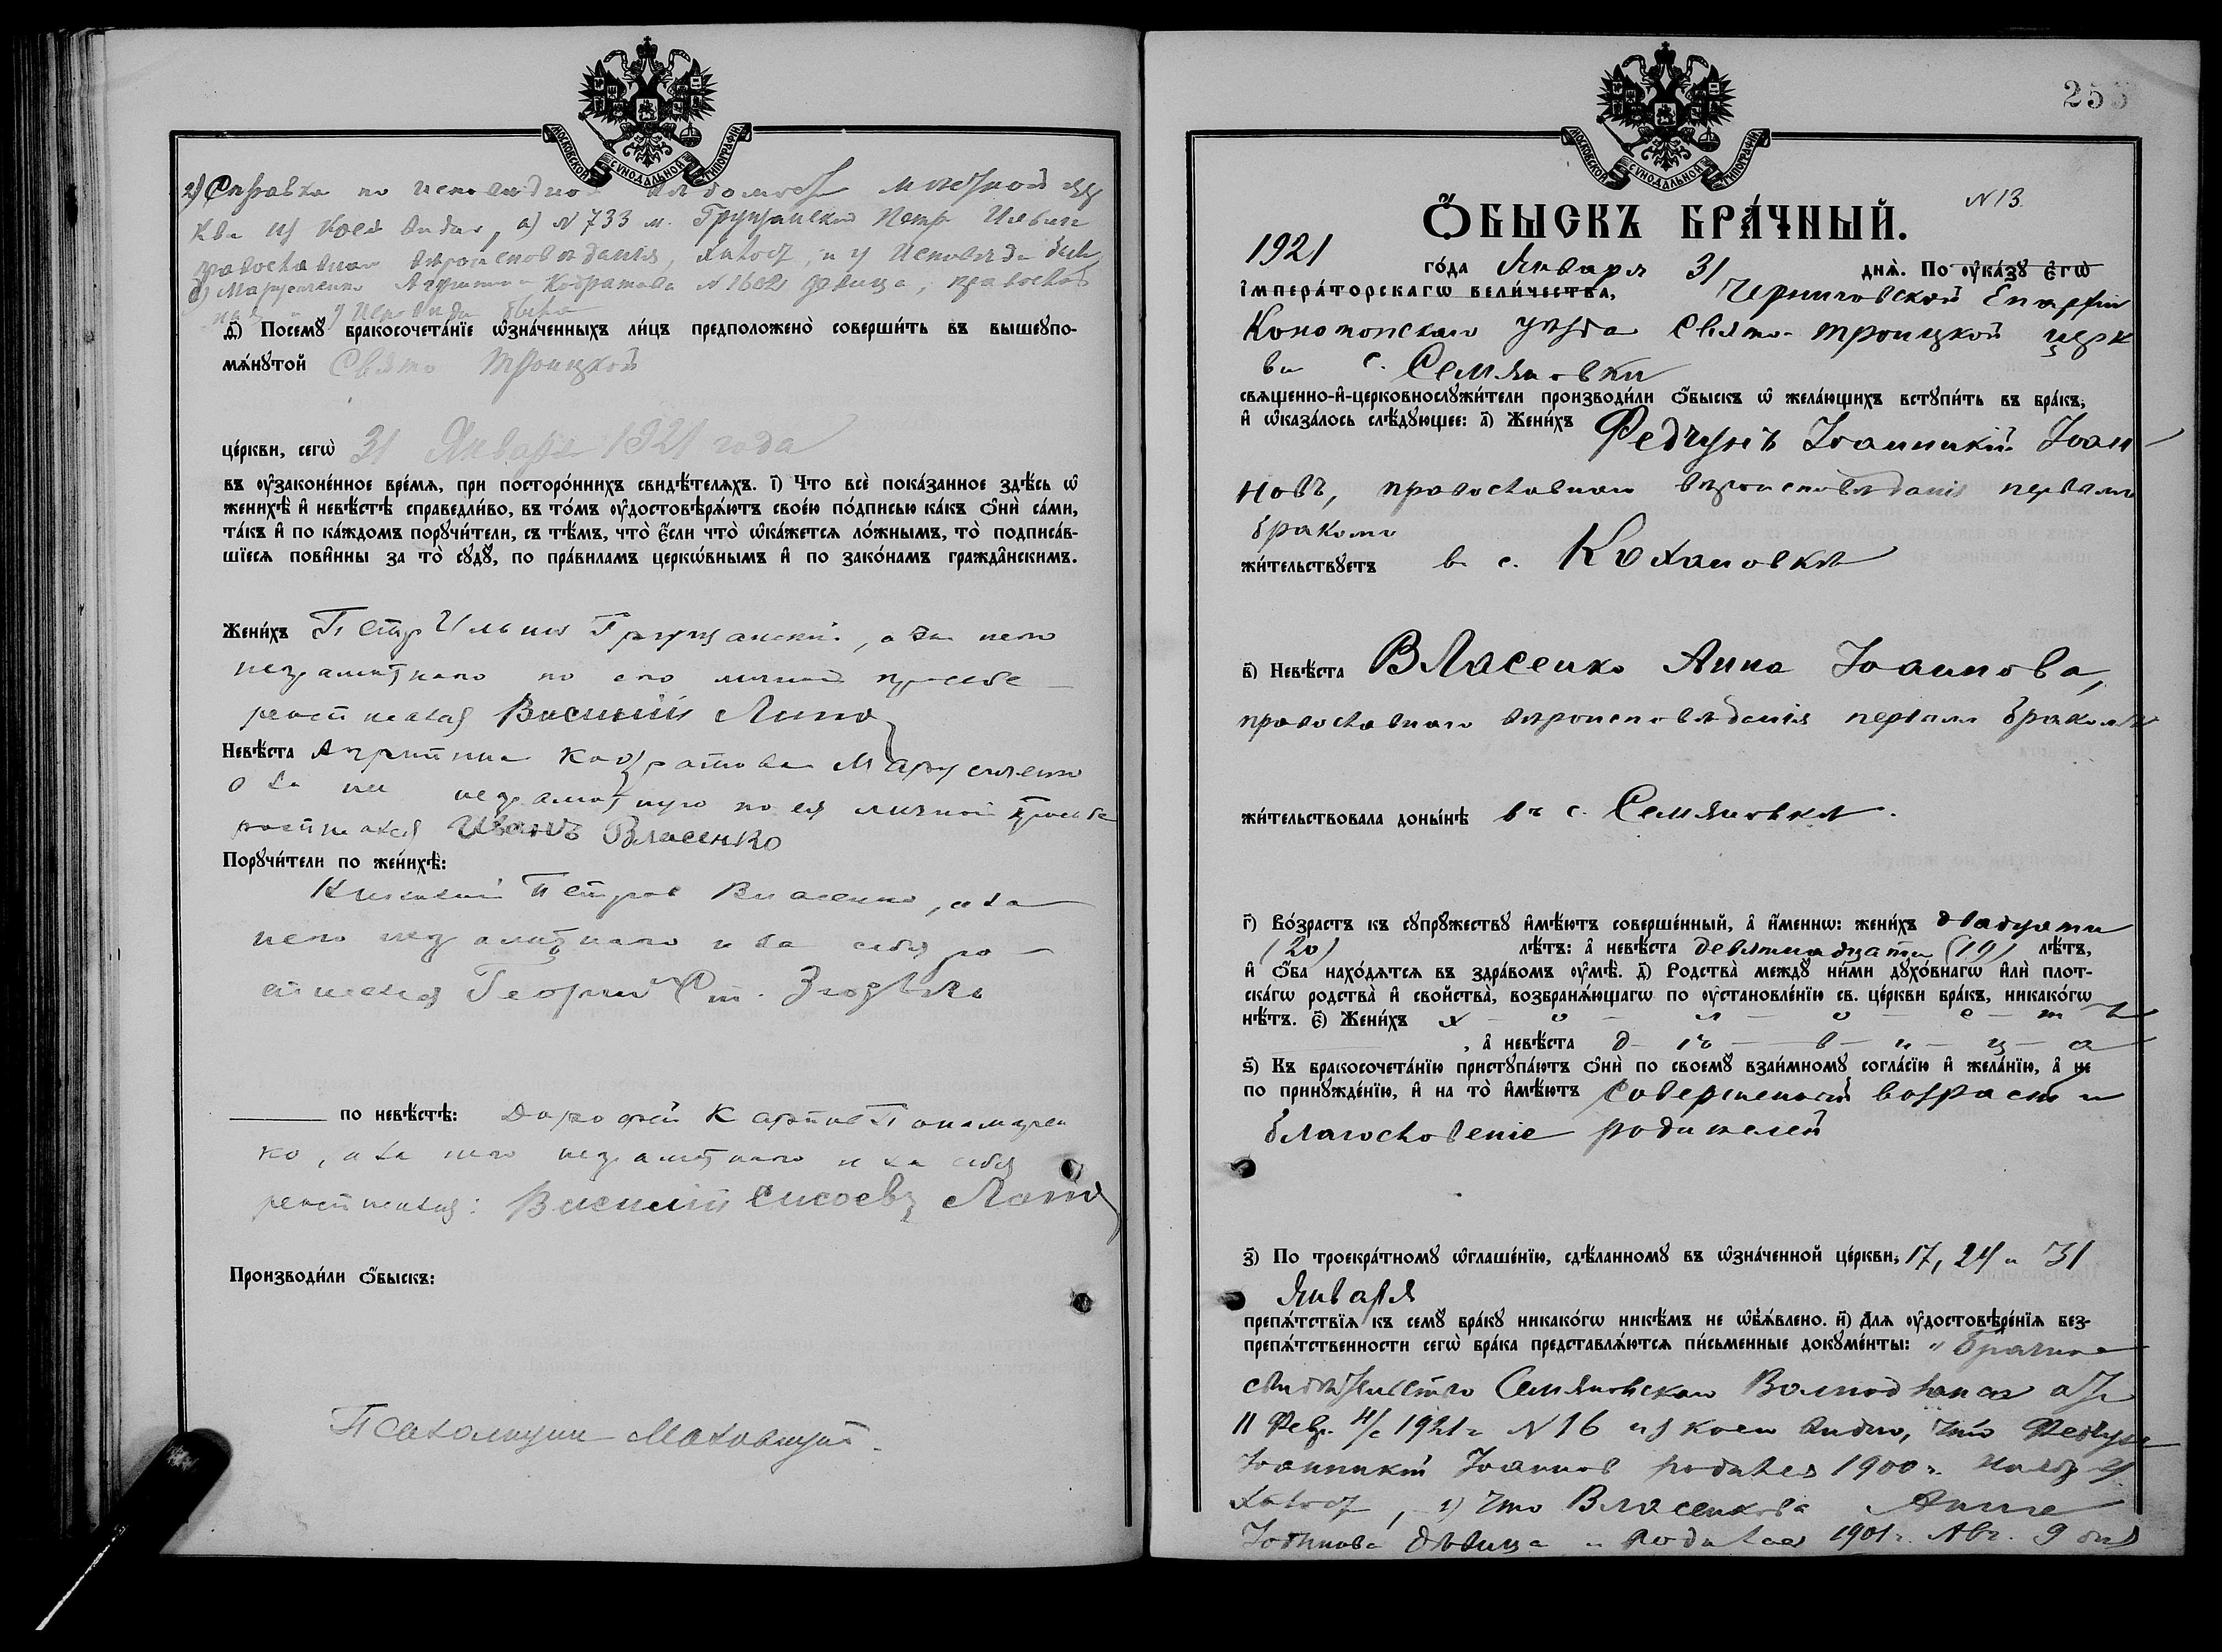 МОСКОВСКОЙ СѴНОДАЛЬНОЙ ТИПОГРАФІИ
2) Справка по исповедной ведомости местной цер
кви из коей видно, а) N 733 м. Грущанский Петр Ильин
православнаго вероисповедания, холост, и у Исповеди был
б) Марусиченко Агрипина Кодратова N 1602 девица, православ
ная и у Исповеди была
д҃) Посемꙋ̀ бракосочета́нїе ѡ҆зна́ченныхъ ли́цъ предположено̀ соверши́ть въ вышеꙋпо-
мѧ́нꙋтой Свято Троицкой
це́ркви, сегѡ̀ 31 Января 1921 года
въ ѹ҆зако́ненное вре́мѧ, при посторо́ннихъ свидѣ́телѧхъ. і҃) Что всѐ пока́занное здѣ́сь ѡ҆
женихѣ̀ и҆ невѣ́стѣ справедли́во, въ то́мъ ѹ҆достовѣрѧ́ютъ свое́ю по́дписью ка́къ ѻ҆нѝ са́ми,
та́къ и҆ по ка́ждомъ порꙋчи́тели, съ тѣ́мъ, что̀ є҆́сли что̀ ѡ҆ка́жетсѧ ло́жнымъ, то̀ подписа́в-
шїесѧ пови́нны за то̀ сꙋдꙋ̀, по пра́виламъ церкѡ́внымъ и҆ по зако́намъ гражда̂нскимъ.
Жени́хъ Петр Ильин Грущанский, а за него
неграмотнаго по его личной просьбе
росписался Василий Липа
Невѣ́ста Агрипина Кодратова Марусиченко
а за нее неграмотную по ея личной просьбе
росписался Иванъ Власенко
Порꙋчи́тели по женихѣ̀:
Петров Власенко, а за
него неграмотнаго и за себя ро
списался Георгий Ст.
по невѣ́стѣ: Дорофей Карпов Панамарен
ко, а за него неграмотнаго и за себя
росписался: Василий Сисоевъ Липа
Производи́ли ѻ҆́быскъ:
Псаломщик
253
МОСКОВСКОЙ СѴНОДАЛЬНОЙ ТИПОГРАФІИ
N 13.
Ѻ҆́БЫСКЪ БРА́ЧНЫЙ.
1921 го́да Января 31 днѧ̀. По ѹ҆ка́зꙋ є҆гѡ̀
і҆мпера́торскагѡ вели́чества, Черниговской Епархии
Конотопскаго уезда Свято-Троицкой церк
ви с. Семяновки
свѧще́нно-и҆-церковнослꙋжи́тели производи́ли ѻ҆́быскъ ѡ҆ жела́ющихъ встꙋпи́ть въ бра́къ,
и҆ ѡ҆каза́лось слѣ́дꙋющее: а҃) Жени́хъ Федчунъ Іоанникій Іоан
новъ, православнаго вероисповеданія первымъ
бракомъ
жи́тельствꙋетъ в с. Кохановке
в҃) Невѣ́ста Власенко Анна Іоаннова,
православнаго вероисповеданія первымъ бракомъ
жи́тельствовала доны́нѣ въ с. Семяновке.
г҃) Во́зрастъ къ сꙋпрꙋ́жествꙋ и҆мѣ́ютъ соверше́нный, а҆ и҆́меннѡ: жени́хъ двадцати
(20) лѣ́тъ: а҆ невѣ́ста девятнадцати (19) лѣ́тъ,
и҆ ѻ҆́ба нахо́дѧтсѧ въ здра́вомъ ѹ҆мѣ̀. д҃) Родства̀ междꙋ̀ ни́ми дꙋхо́внагѡ и҆лѝ плот-
ска́гѡ родства̀ и҆ свойства̀, возбранѧ́ющагѡ по ѹ҆становле́нїю св. це́ркви бра́къ, никако́гѡ
нѣ́тъ. є҃) Жени́хъ х - о - л - о - с - т - ъ
, а҆ невѣ́ста д - ѣ - в - и - ц - а
ѕ҃) Къ бракосочета́нїю пристꙋпа́ютъ ѻ҆нѝ по своемꙋ̀ взаи́мномꙋ согла́сїю и҆ жела́нїю, а҆ не
по принꙋжде́нїю, и҆ на то̀ и҆мѣ́ютъ совершенный возраст и
благословеніе родителей
з҃) По троекра́тномꙋ ѡ҆глаше́нїю, сдѣ́ланномꙋ въ ѡ҆зна́ченной це́ркви, 17, 24 и 31
Января
препѧ́тствїѧ къ семꙋ̀ бра́кꙋ никако́гѡ никѣ́мъ не ѡ҆б̾ѧ́влено. и҃) Длѧ ѹ҆достовѣре́нїѧ без-
препѧ́тственности сегѡ̀ бра́ка представлѧ́ютсѧ пи́сьменные докꙋме́нты: Брачное
свидетельство Семяновскаго от
11 Февр. 1921 г. N 16 из коего видно, что Федчун
Іоанникій Іоаннов родился 1900 г.
холост, 2) что Власенкова Анна
Іоаннова девица и родилась 1901 г. Авг. 9 дня